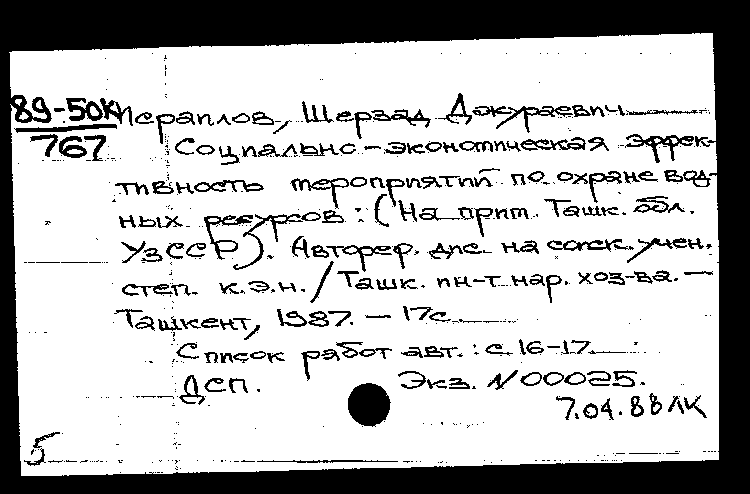 89-50К
767
Исраилов, Шерзад Джураевич
Социально-экономическая эффек-
тивность мероприятий по охране вод-
ных ресурсов: (На прим. Ташк. обл.
УзССР). Автореф. дис. на соиск. учен.
степ. к.э.н. / Ташк. ин-т нар. хоз-ва. —
Ташкент, 1987. — 17с.
Список работ авт.: с. 16-17.
ДСП. Экз. N 00025.
7.04.88 ЛК
5